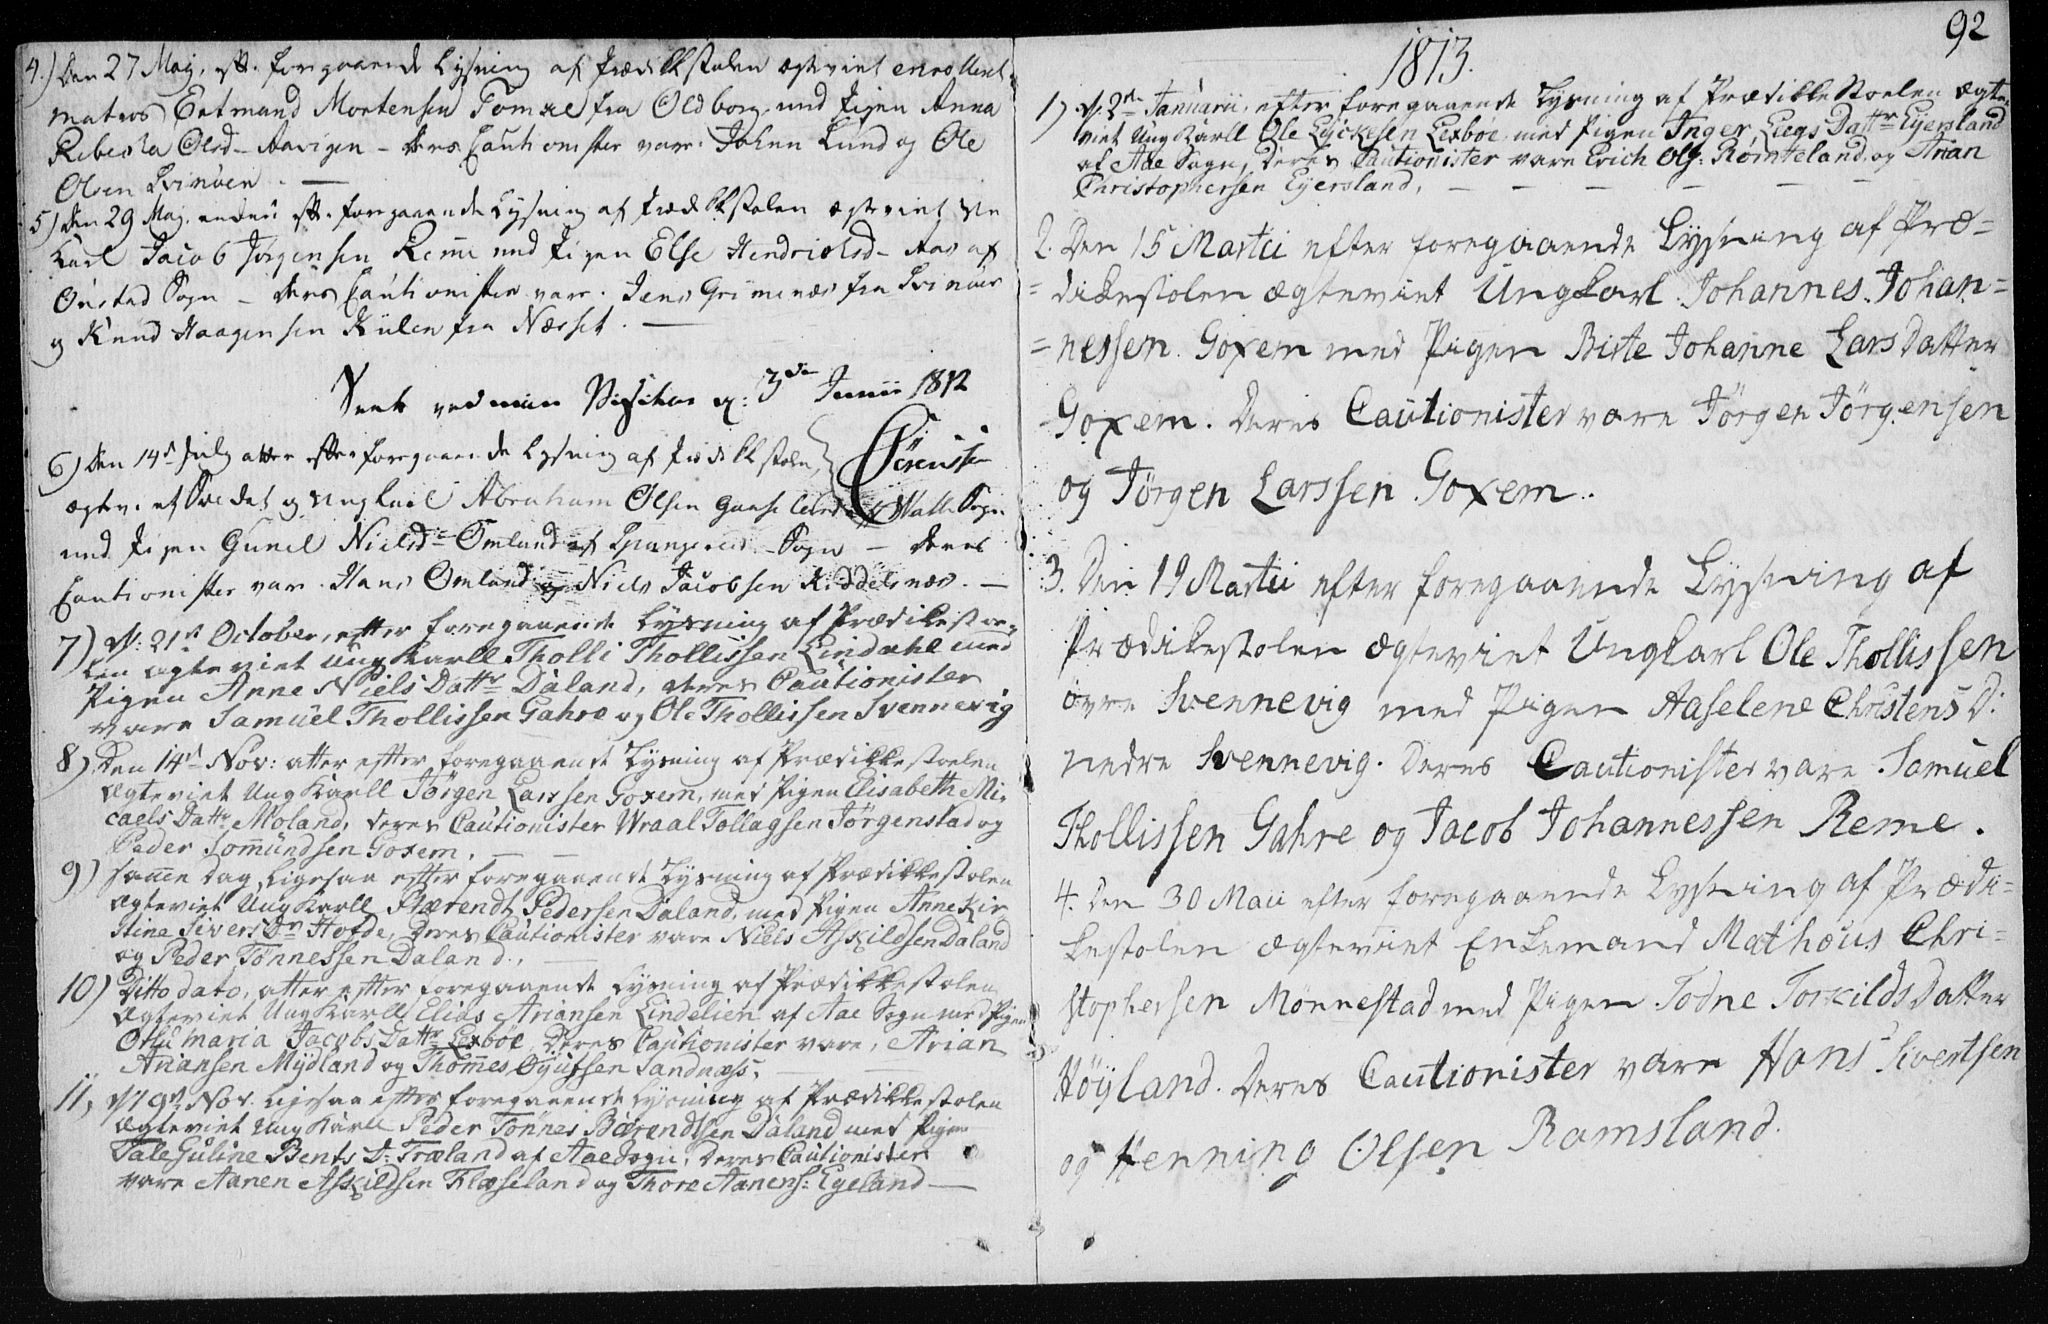 4.) Den 27 Maj, eft. foregaaende Lysning af Prædikkestolen ægteviet enrolleret
matros Ertmand Mortensen Tomxe fra Oldborg med Pigen Anna
Rebecka Olsd- Aavigen - deres Cautionister vare Johan Lund og Ole
Olsen Svinøen. —
5) Den 29 Maj. endnu eft. foregaaende Lysning af Prædikkstolen ægteviet
Karl Jacob Jørgensen Reme med Pigen Else Hendrichsd- Aas af
Oustad Sogn - deres Cautionister vare. Jens Grimenæs fra Svinøer
og Knud Haagensen Kulen fra Næsset. —
Seet ved min Visitas d: 3de Junii 1812
Sørenssen
6) Den 14de July atter efter foregaaende Lysning af Prædikkstolen
ægtev. et Soldat og Ungkarl Abraham Olsen Gaaseland af Walle Sogn
med Pigen Gunil Nielsd- Omland af Spangereid Sogn - deres
Cautionister var Hans Omland og Niels Jacobsen Kiddelsnæs. —
7) D: 21de October, efter foregaaende Lysning af Prædikestoe-
len ægteviet Ung Karll Tholli Thollissen Lindahl med
Pigen Anne Niels Dattr Daland, deres Cautionister
vare Samuel Thollissen Gahre og Ole Thollissen Svennevig
8) Den 14de Nov: atter efter foregaaende Lysning af Prædikkestoelen
ægteviet Ung Karll Jørgen Larssen Goxem, med Pigen Elisabeth Mi-
caels Dattr Moland, deres Cautionister Wraal Tollagsen Jørgenstad og
Peder Somundsen Goxem. — —
9) samme Dag Ligesaa efter foregaaende Lysning af Prædikkestolen
ægteviet Ung Karll Bærendt Pedersen Daland, med Pigen Anne Kir-
stine Sivers Dr Hofde, deres Cautionister vare Niels Askildsen Daland
og Peder Tønnessen Daland. —
10) Ditto dato, atter efter foregaaende Lysning af Prædikkestolen
ægteviet Ung Karll Elias Ariansen Lindelien af Aae Sogn med Pigen
Othu Maria Jacobs Dattr Lexbøe, Deres Cautionister vare, Arian
Ariansen Mydland og Thommes Gjutssen Sandnæss. —
11, D: 19de Nov. Ligesaa efter foregaaende Lysning af Prædikkestolen
ægteviet Ung Karll Peder Tønnes Bærendtsen Daland med Pigen
Tale Guline Bents D: Træland af Aae Sogn, deres Cautionister
vare Aanen Askildsen Flæseland og Thore Aanens: Egeland —
92
1813.
1) D: 2den Januarii, efter foregaaende Lysning af Prædikke Stoelen ægte-
viet Ung Karll Ole Lyckesen Lexbøe, med Pigen Inger Liegs Dattr Ejersland
af Aae Sogn, Deres Cautionister vare Erich Ols: Rømteland, og Arian
Christophersen Ejersland, — — — — — —
2. Den 15 Martii efter foregaaende Lysning af Præ=
=dikestolen ægteviet Ungkarl Johannes Johan=
=nessen Goxem med Pigen Birte Johanne Larsdatter
Goxem. Deres Cautionister vare Jörgen Jörgensen
og Jörgen Larssen Goxem.
3. Den 19 Martii efter foregaaende Lysning af
Prædikestolen ægteviet Ungkarl Ole Thollissen
øvre Svennevig med Pigen Aaselene Christens D:
nedre Svennevig. Deres Cautionister vare Samuel
Thollissen Gahre og Jacob Johannessen Reme.
4. Den 30 Maii efter foregaaende Lysning af Prædi=
kestolen ægteviet Enkemand Mathæus Chri=
stophersen Mönnestad med Pigen Todne Torkildsdatter
Höyland. Deres Cautionister vare Hans Sivertsen
og Henning Olsen Ramsland.